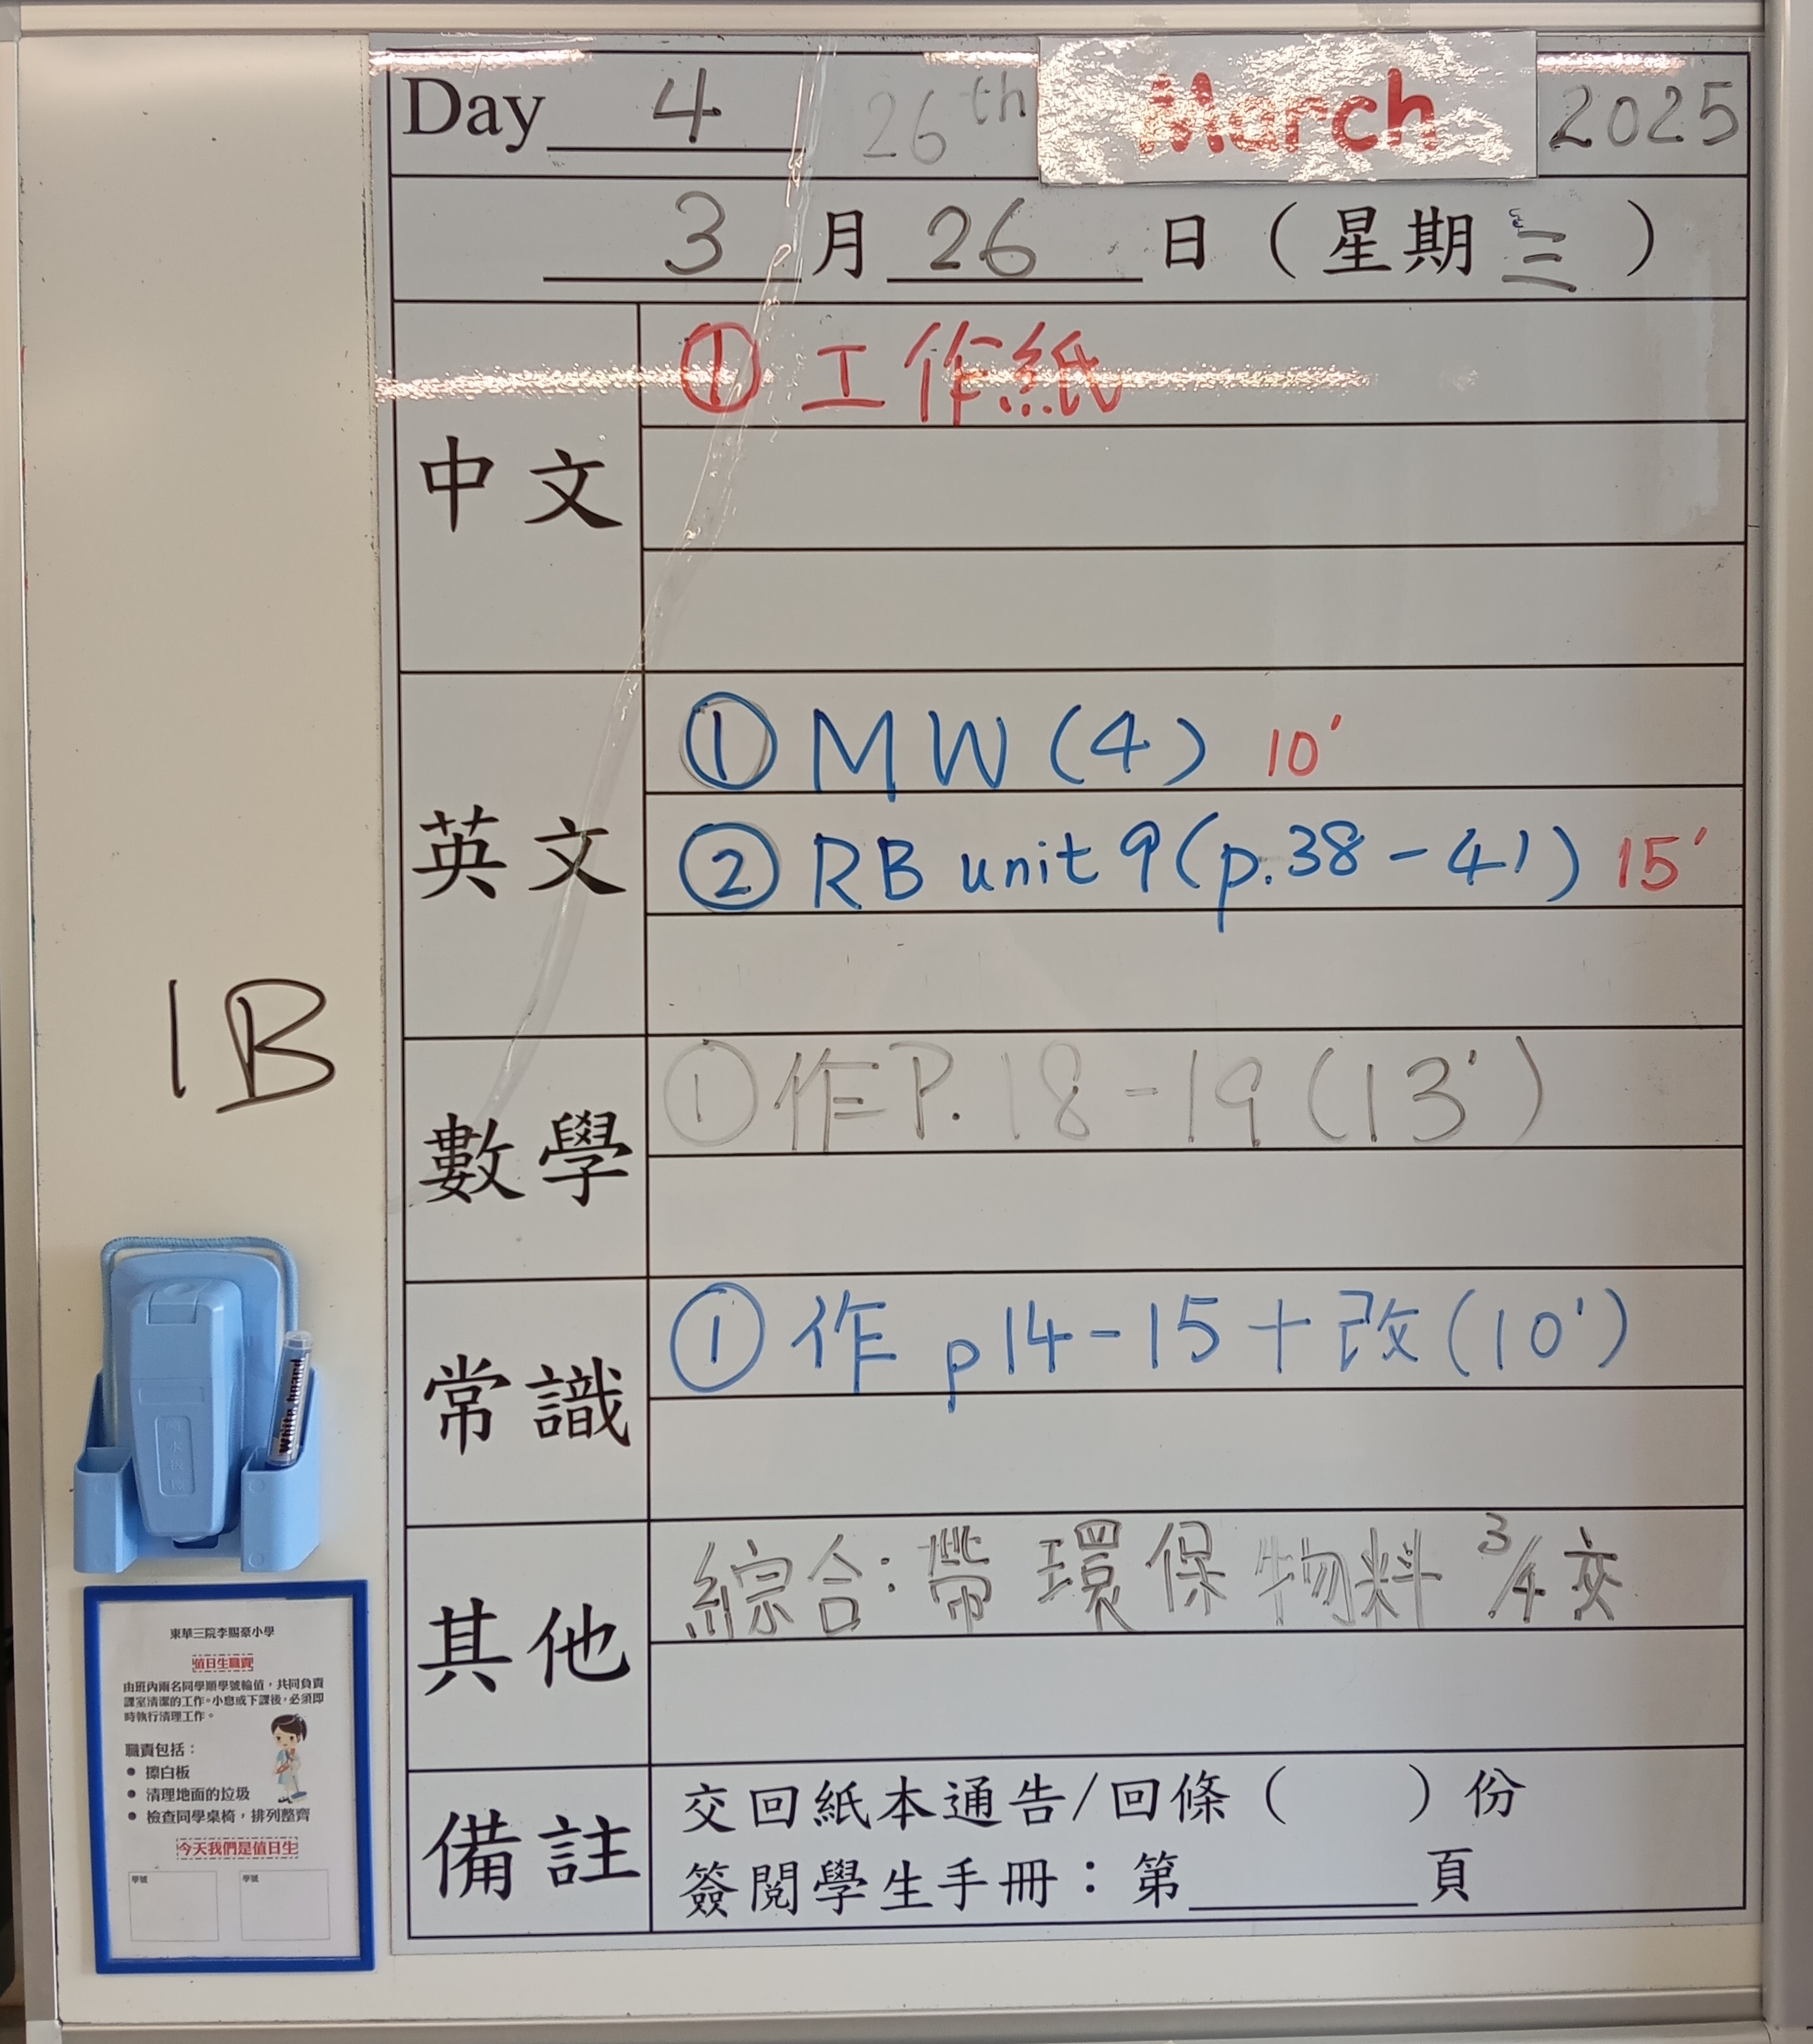 Day 4 26th March 2025
3 月 26 日 ( 星期 三 )
中文
① 工作紙
英文
① MW (4) 10'
② RB unit 9 (p.38 - 41) 15'
數學
① 作P.18-19 (13')
常識
① 作 p14-15 + 改 (10')
其他
綜合: 帶 環保物料 3/4 交
備註
交回紙本通告/回條 ( ) 份
簽閱學生手冊：第 頁
1B
White board
東華三院李賜豪小學
值日生職責
由班內兩名同學順學號輪值，共同負責
課室清潔的工作。小息或下課後，必須即
時執行清理工作。
職責包括：
• 擦白板
• 清理地面的垃圾
• 檢查同學桌椅，排列整齊
今天我們是值日生
學號 學號